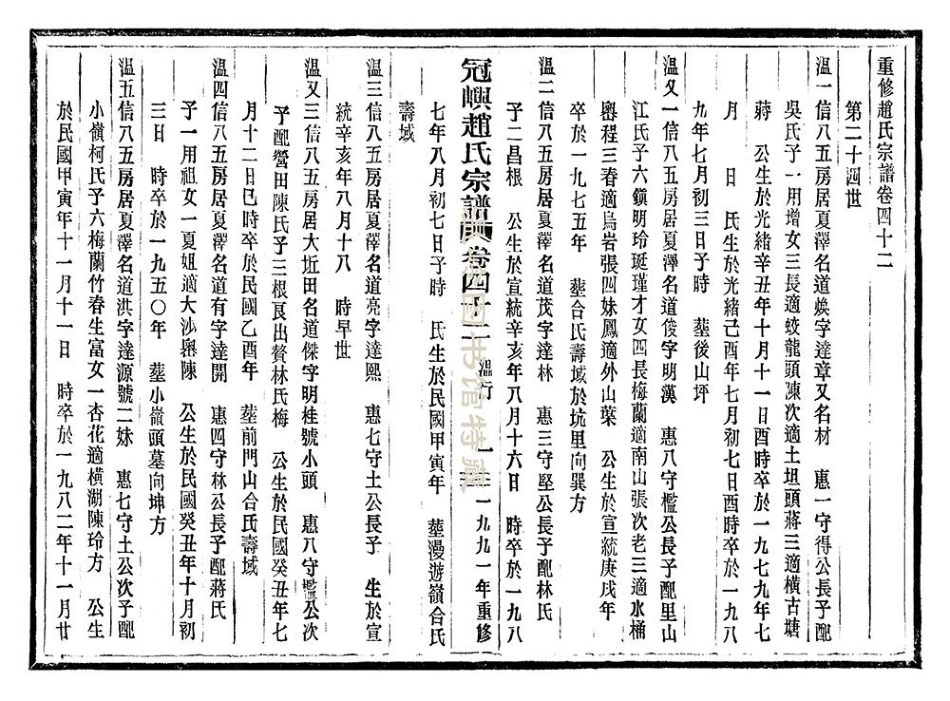 重修趙氏宗譜卷四十二
第二十四世
溫一信八五房居夏澤名道煥字達章又名材　惠一守得公長子配
吳氏子一用增女三長適蛟龍頭涷次適土坦頭蔣三適橫古塘
蔣　公生於光緒辛丑年十月十一日酉時卒於一九七九年七
月　日　氏生於光緒己酉年七月初七日酉時卒於一九八
九年七月初三日子時　塟後山坪
溫又一信八五房居夏澤名道俊字明漢　惠八守檻公長子配里山
江氏子六鎭明玲珽瑾才女四長梅蘭適南山張次老三適水桶
嶴程三春適烏岩張四妹鳳適外山葉　公生於宣統庚戌年
卒於一九七五年　塟合氏壽域於坑里向巽方
溫二信八五房居夏澤名道茂字達林　惠三守堅公長子配林氏
子二昌根　公生於宣統辛亥年八月十六日　時卒於一九八
冠嶼趙氏宗譜　卷四十二　溫行　一　一九九一年重修
七年八月初七日子時　氏生於民國甲寅年　塟漫遊嶺合氏
壽域
溫三信八五房居夏澤名道亮字達熙　惠七守土公長子　生於宣
統辛亥年八月十八　時早世
溫又三信八五房居大坵田名道傑字明桂號小頭　惠八守檻公次
子配營田陳氏子三根艮出贅林氏梅　公生於民國癸丑年七
月十二日巳時卒於民國乙酉年　塟前門山合氏壽域
溫四信八五房居夏澤名道有字達開　惠四守林公長子配蔣氏
子一用祖女一夏姐適大沙嶴陳　公生於民國癸丑年十月初
三日　時卒於一九五〇年　塟小嶺頭墓向坤方
溫五信八五房居夏澤名道洪字達源號二妹　惠七守土公次子配
小嶺柯氏子六梅蘭竹春生富女一杏花適橫湖陳玲方　公生
於民國甲寅年十一月十一日　時卒於一九八二年十一月廿